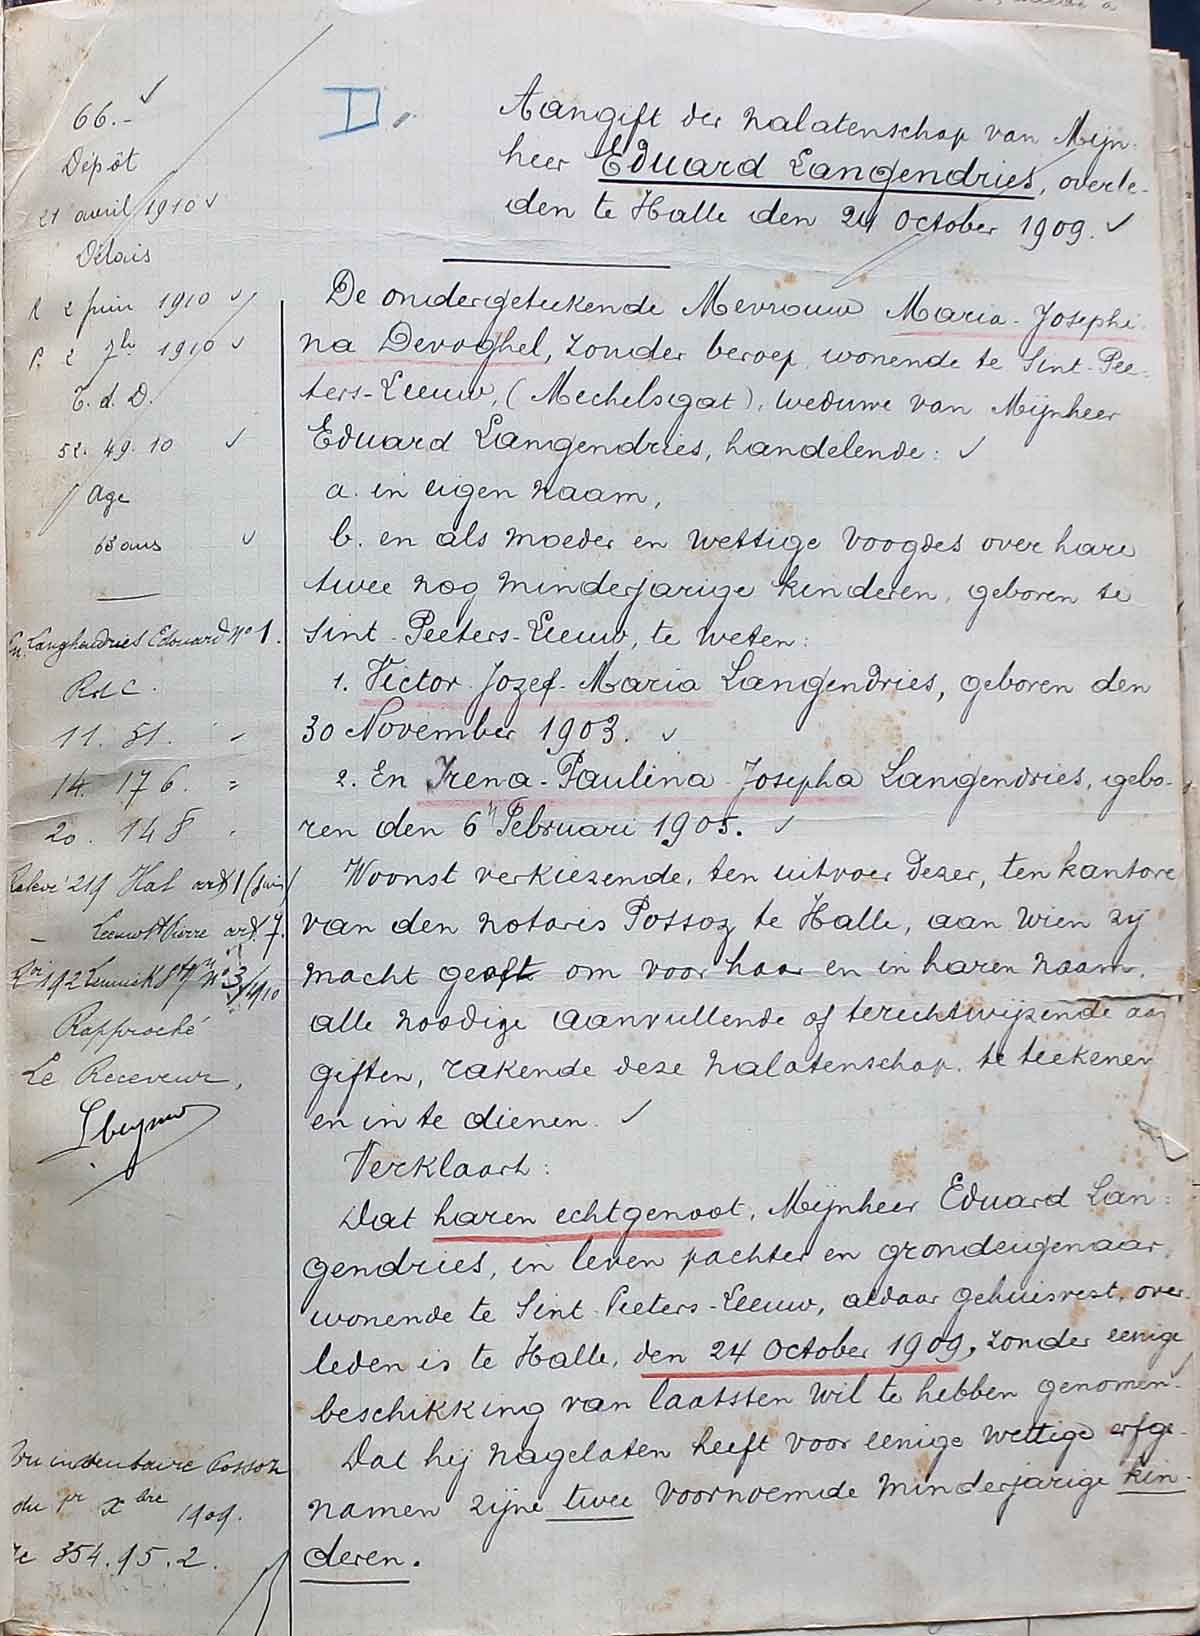 66.-
Dépôt
21 avril 1910
Délais
2 juin 1910
P. 2 7bre 1910
T. d. D.
52. 49. 10
Age
63 ans
Langhendries Edouard No 1.
R d C.
11. 51.
14. 176.
20. 148
219 Hal art 1 (Juin)
Leeuw St Pierre art. 7.
192 Lennick St Qn No 3/1910
Rapproché
Le Receveur,
Vu inventaire Possoz
du pr Xbre 1909.
354.95.2.
D.
Aangift der nalatenschap van Mijn-
heer Eduard Langendries, overle-
den te Halle den 24 October 1909.
De ondergeteekende Mevrouw Maria-Josephi-
na Devoghel, zonder beroep, wonende te Sint-Pee-
ters-Leeuw, (Mechelsgat), weduwe van Mijnheer
Eduard Langendries, handelende:
a. in eigen naam,
b. en als moeder en wettige voogdes over hare
twee nog minderjarige kinderen, geboren te
Sint-Peeters-Leeuw, te weten:
1. Victor-Jozef-Maria Langendries, geboren den
30 November 1903.
2. En Irena-Paulina-Josepha Langendries, gebo-
ren den 6n Februari 1905.
Woonst verkiezende, ten uitvoer dezer, ten kantore
van den notaris Possoz te Halle, aan wien zij
macht geeft om voor haar en in haren naam,
alle noodige aanvullende of terechtwijzende aan
giften, rakende deze nalatenschap, te teekenen
en in te dienen.
Verklaart:
Dat haren echtgenoot, Mijnheer Eduard Lan-
gendries, in leven pachter en grondeigenaar,
wonende te Sint-Peeters-Leeuw, aldaar gehuisvest, over-
leden is te Halle, den 24 October 1909, zonder eenige
beschikking van laatsten wil te hebben genomen.
Dat hij nagelaten heeft voor eenige wettige erfge-
namen zijne twee voornoemde minderjarige kin-
deren.